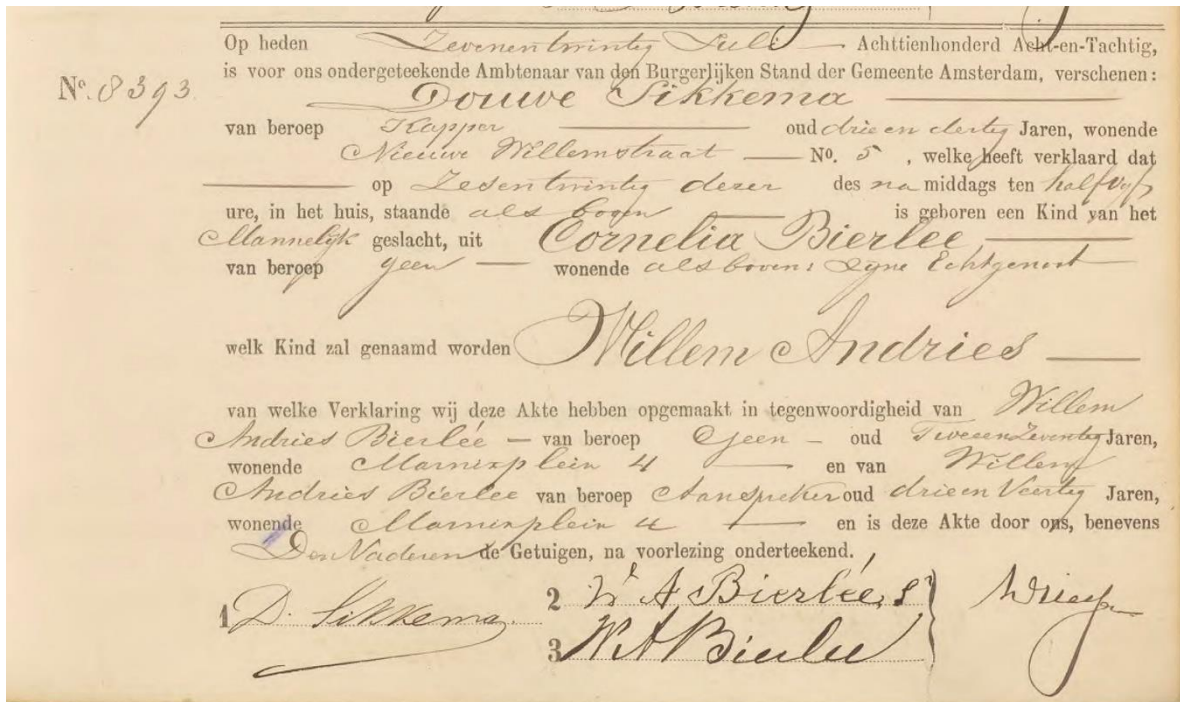 Op heden Zevenentwintig Juli Achttienhonderd Acht-en-Tachtig,
is voor ons ondergeteekende Ambtenaar van den Burgerlijken Stand der Gemeente Amsterdam, verschenen:
No. 8393.
Douwe Sikkema
van beroep Kapper oud drie en dertig Jaren, wonende
Nieuwe Willemstraat No. 5, welke heeft verklaard dat
op Zesentwintig dezer des na middags ten half vijf
ure, in het huis, staande als boven is geboren een Kind van het
Mannelijk geslacht, uit Cornelia Bierlee,
van beroep geen wonende als boven: Zijne Echtgenoot
welk Kind zal genaamd worden Willem Andries
van welke Verklaring wij deze Akte hebben opgemaakt in tegenwoordigheid van Willem
Andries Bierlée van beroep Geen oud Tweeenzeventig Jaren,
wonende Marnixplein 4 en van Willem
Andries Bierlee van beroep Aanspreker oud drie en Veertig Jaren,
wonende Marnixplein 4 en is deze Akte door ons, benevens
Den Vader en de Getuigen, na voorlezing onderteekend.
1 D. Sikkema
2 W A Bierlée, S.
3 W. A Bierlee